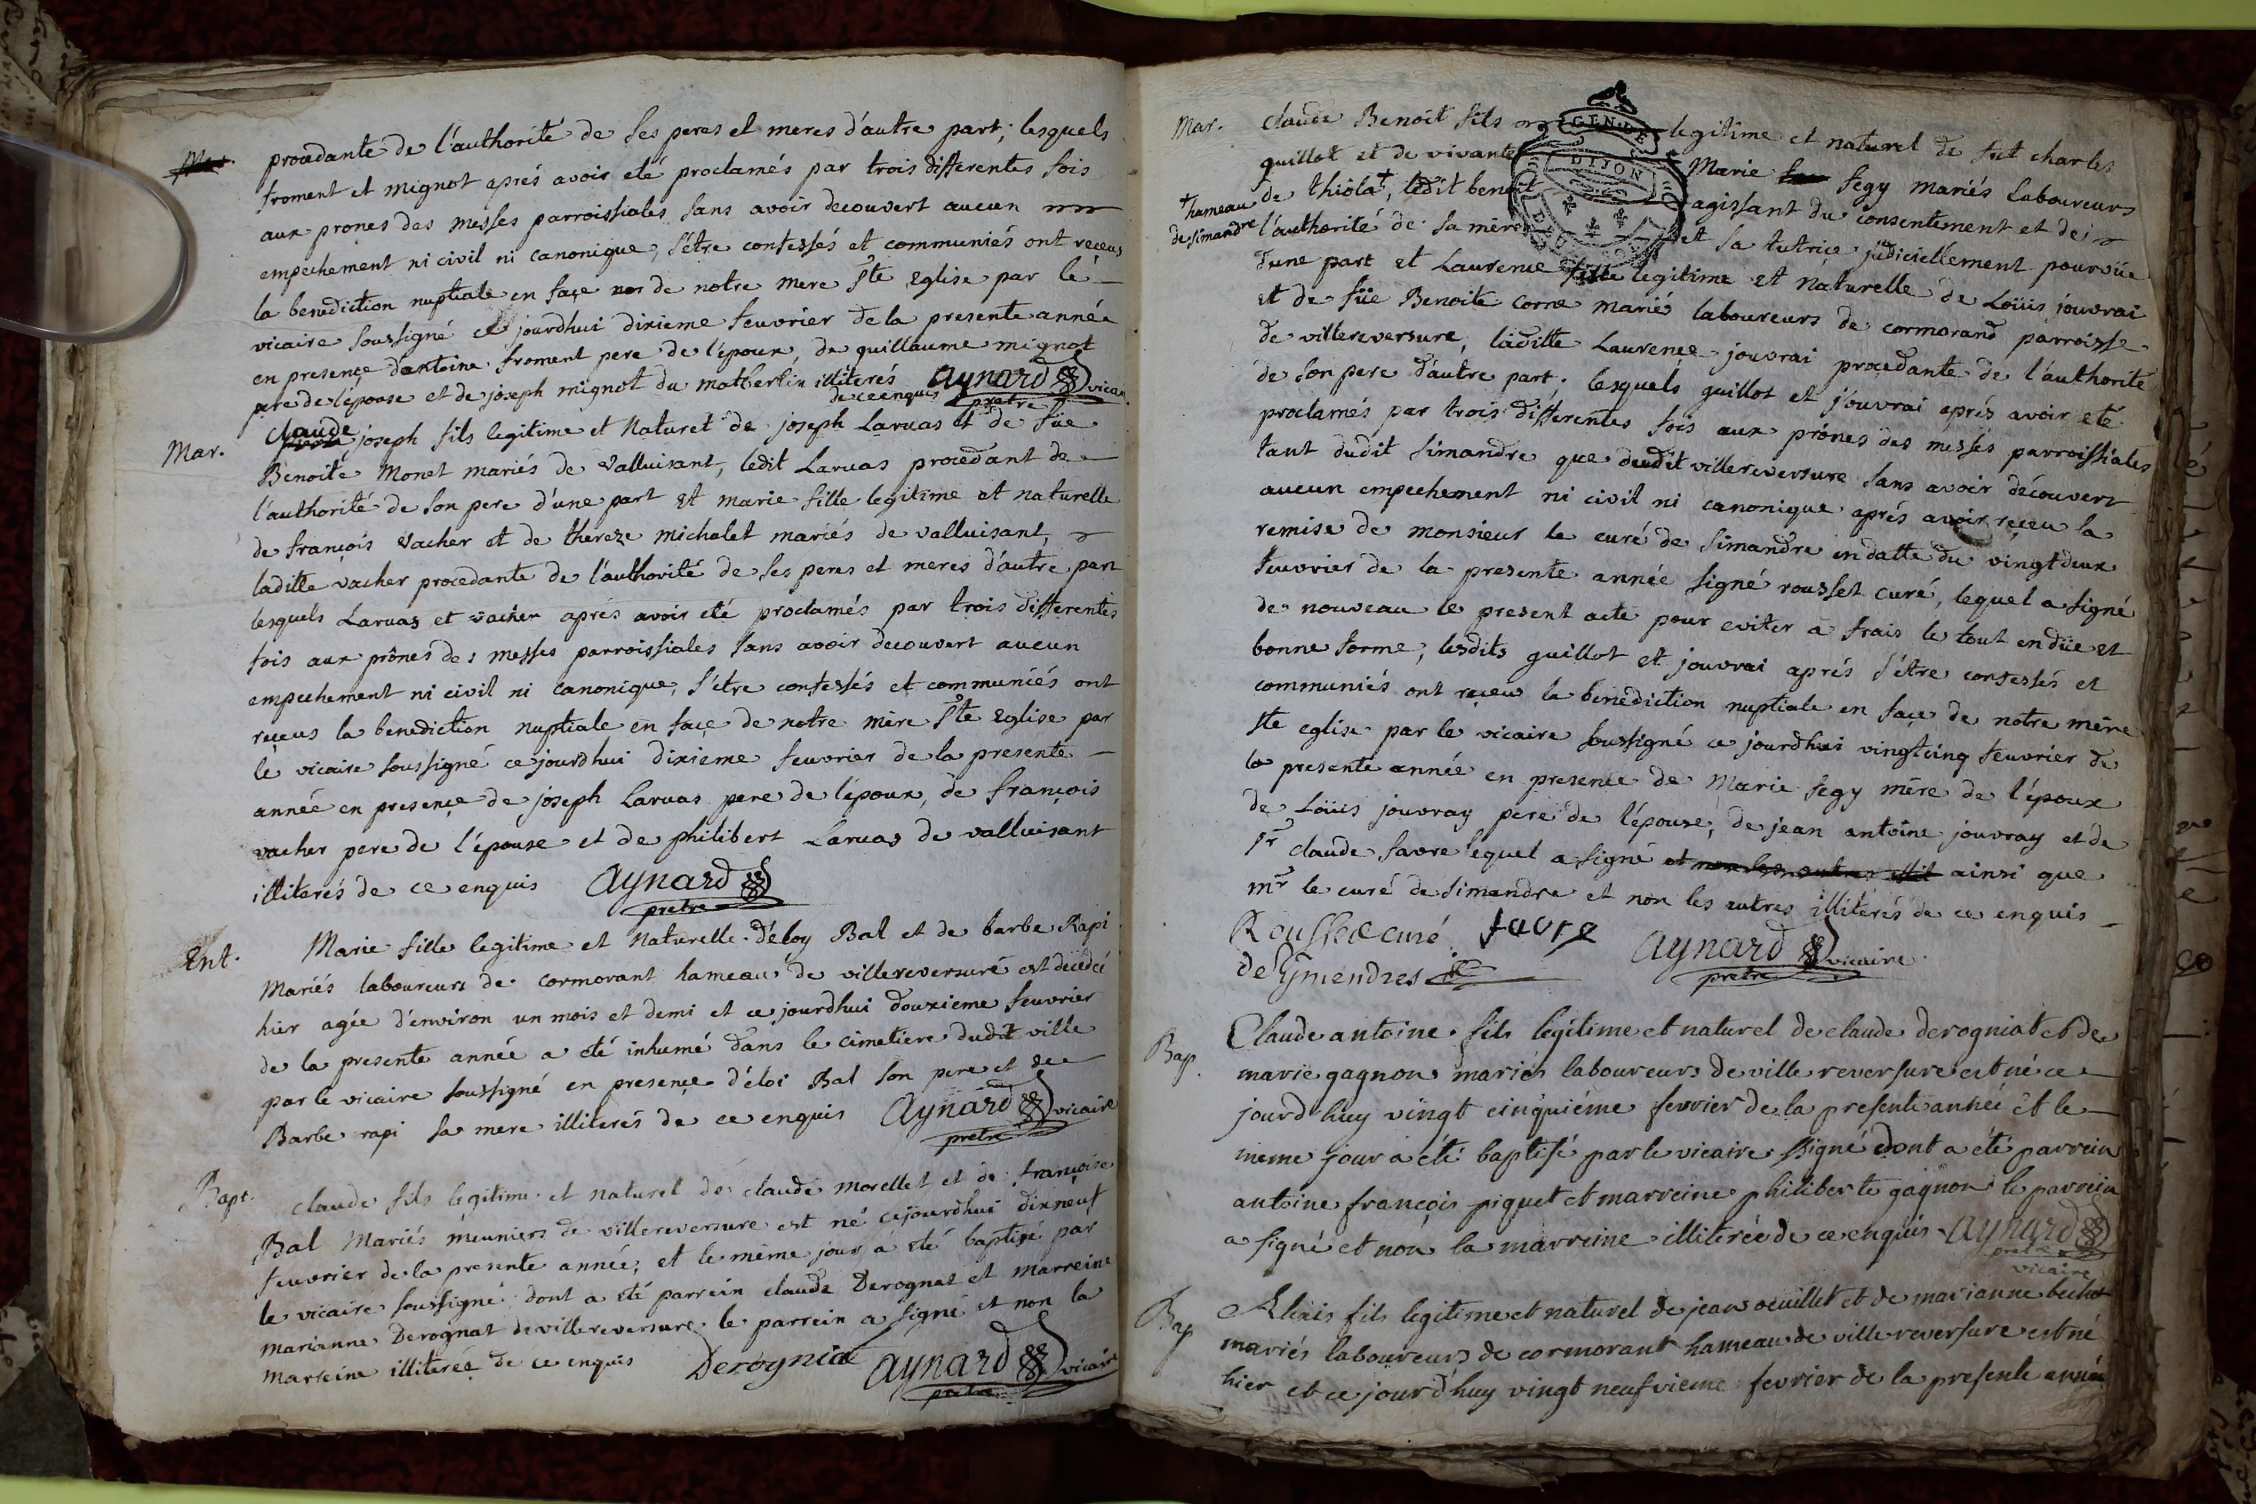 procedante de l'authorité de ses peres et meres d'autre part; lesquels
froment et mignot aprés avoir eté proclamés par trois differentes fois
aux prones des messes parroissiales sans avoir decouvert aucun
empechement ni civil ni canonique, s'être confessés et communiés ont receus
la benediction nuptiale en façe de notre mere Ste Eglise par le
vicaire soussigné ce jourdhui dixieme feuvrier de la presente année
en presençe d'antoine froment pere de l'époux, de guillaume mignot
pere de l'épouse et de joseph mignot du matherlin illiterés
de ce enquis aynard pretre vicaire
Mar. claude joseph fils legitime et Naturel de joseph Laruas et de füe
Benoite Monet mariés de valluisant, ledit Laruas procedant de
l'authorité de son pere d'une part et marie fille legitime et naturelle
de françois vacher et de thereze michalet mariés de valluisant,
laditte vacher procedante de l'authorité de ses peres et meres d'autre part
lesquels Laruas et vacher aprés avoir eté proclamés par trois differentes
fois aux prônes des messes parroissiales sans avoir decouvert aucun
empechement ni civil ni canonique, s'être confessés et communiés ont
reçeus la benediction nuptiale en façe de notre mère Ste Eglise par
le vicaire soussigné ce jourdhui dixieme feuvrier de la presente
année en presençe de joseph Laruas pere de l'époux, de françois
vacher pere de l'épouse et de philibert Laruas de valluisant
illiterés de ce enquis aynard pretre
Ent. Marie fille legitime et Naturelle d'éloy Bal et de barbe Rapi
Mariés laboureurs de cormorant hameau de villereversure est decedée
hier agée d'environ un mois et demi et ce jourdhui douxieme feuvrier
de la presente année a eté inhumé dans le cimetiere dudit ville
par le vicaire soussigné en presençe d'éloi Bal son pere et de
Barbe rapi sa mere illiterés de ce enquis aynard pretre vicaire
Bapt. claude fils legitime et naturel de claude morellet et de françoise
Bal Mariés meuniers de villereversure est né cejourdhui dixneuf
feuvrier de la presente année, et le même jour a eté baptisé par
le vicaire soussigné dont a eté parrein claude Derognat et marreine
marianne Derognat de villereversure le parrein a signé et non la
marreine illiterée de ce enquis Derogniat aynard pretre vicaire
Mar. claude Benoit fils legitime et naturel de fut charles
GEN. DE
DIJON
guillot et de vivante Marie segy mariés Laboureurs
de thiola+, ledit benoit agissant du consentement et de
+ hameau
de simandre
l'authorité de sa mère et sa tutrice judiciellement pourvüe
d'une part et Laurence fille legitime et naturelle de Loüis jouvrai
et de füe Benoite corne mariés laboureurs de cormorand parroisse
de villereversure, laditte Laurençe jouvrai procedante de l'authorité
de son pere d'autre part; lesquels guillot et jouvrai aprés avoir eté
proclamés par trois differentes fois aux prônes des messes parroissiales
tant dudit simandre que dudit villereversure sans avoir découvert
aucun empechement ni civil ni canonique aprés avoir reçeu la
remise de monsieur le curé de simandre en datte du vingtdeux
feuvrier de la presente année signé rousset curé, lequel a signé
de nouveau le present acte pour eviter a frais le tout en düe et
bonne forme; lesdits guillot et jouvrai aprés s'être confessés et
communiés ont reçeus la benediction nuptiale en façe de notre mère
ste eglise par le vicaire soussigné ce jourdhui vingtcinq feuvrier de
la presente année en presence de Marie segy mère de l'époux
de Loüis jouvray pere de l'épouse, de jean antoine jouvray et de
sr claude favre lequel a signé ainsi que
mr le curé de simandre et non les autres illiterés de ce enquis
Rousset curé favre aynard pretre vicaire
de Symendres
Bap. Claude antoine fils legitime et naturel de claude derogniat et de
marie gagnon mariés laboureurs de ville reversure est né ce
jourd'huy vingt cinquiéme fevrier de la presente année et le
meme jour a été baptisé par le vicaire signé dont a été parrein
antoine françois piquet et marreine philiberte gagnon le parrein
a signé et non la marreine illiterée de ce enquis aynard pretre
vicaire
Bap Alexis fils legitime et naturel de jean oeuillet et de marianne bechet
mariés laboureurs de cormorant hameau de ville reversure est né
hier et ce jourd'huy vingt neufvieme fevrier de la presente année